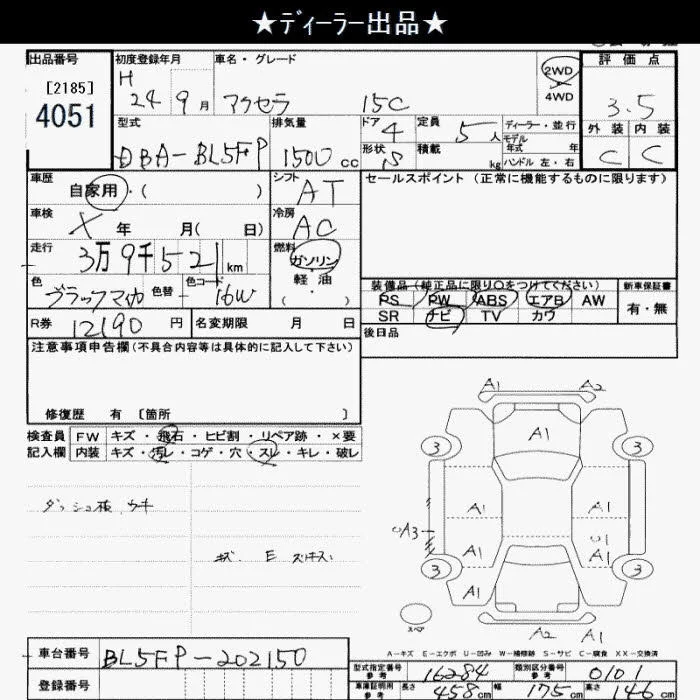 ★ディーラー出品★
出品番号
[2185]
4051
初度登録年月
H
24 9 月
車名・グレード
アクセラ 15C
2WD
4WD
評価点
3.5
外装 内装
C C
型式
DBA-BL5FP
排気量
1500 cc
ドア 4
形状 S
定員 5 人
積載 kg
ディーラー・並行
モデル
年式 年
ハンドル 左・右
車歴
自家用・( )
シフト AT
車検
X 年 月( 日)
冷房 AC
走行
3万9千521 km
燃料
ガソリン
軽・油
( ・ )
色
ブラックマイカ
色替
色コード
16W
R券 12190 円
名変期限 月 日
セールスポイント (正常に機能するものに限ります)
装備品(純正品に限り○をつけてください)
PS PW ABS エアB AW
SR ナビ TV カワ
新車保証書
有・無
後日品
注意事項申告欄(不具合内容等は具体的に記入して下さい)
修復歴 有 [箇所 ]
検査員
記入欄
FW キズ・飛石・ヒビ割・リペア跡・×要
内装 キズ・汚レ・コゲ・穴・スレ・キレ・破レ
ダッシュ板 ウキ
キズ. E
A1 A2
A1
3 3
A1 A1
A3
A1 U1
A1
3 3
A1
スペア
A2 A1
A-キズ E-エクボ U-凹み W-補修跡 S-サビ C-腐食 XX-交換済
車台番号
BL5FP-202150
登録番号
型式指定番号
参考
16284
類別区分番号
参考
0101
車庫証明用
参考
長さ 458 cm 幅 175 cm 高さ 146 cm